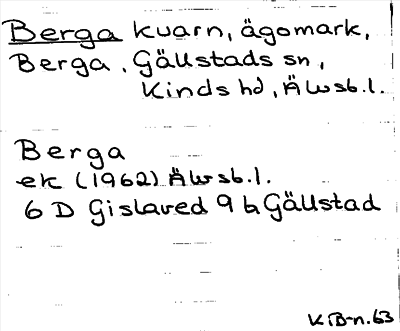 Berga kvarn, ägomark,
Berga, Gällstads sn,
Kinds hd, Älvsb.l.
Berga
ek (1962) Älvsb.l.
6 D Gislaved 9 b Gällstad
KB-n.63